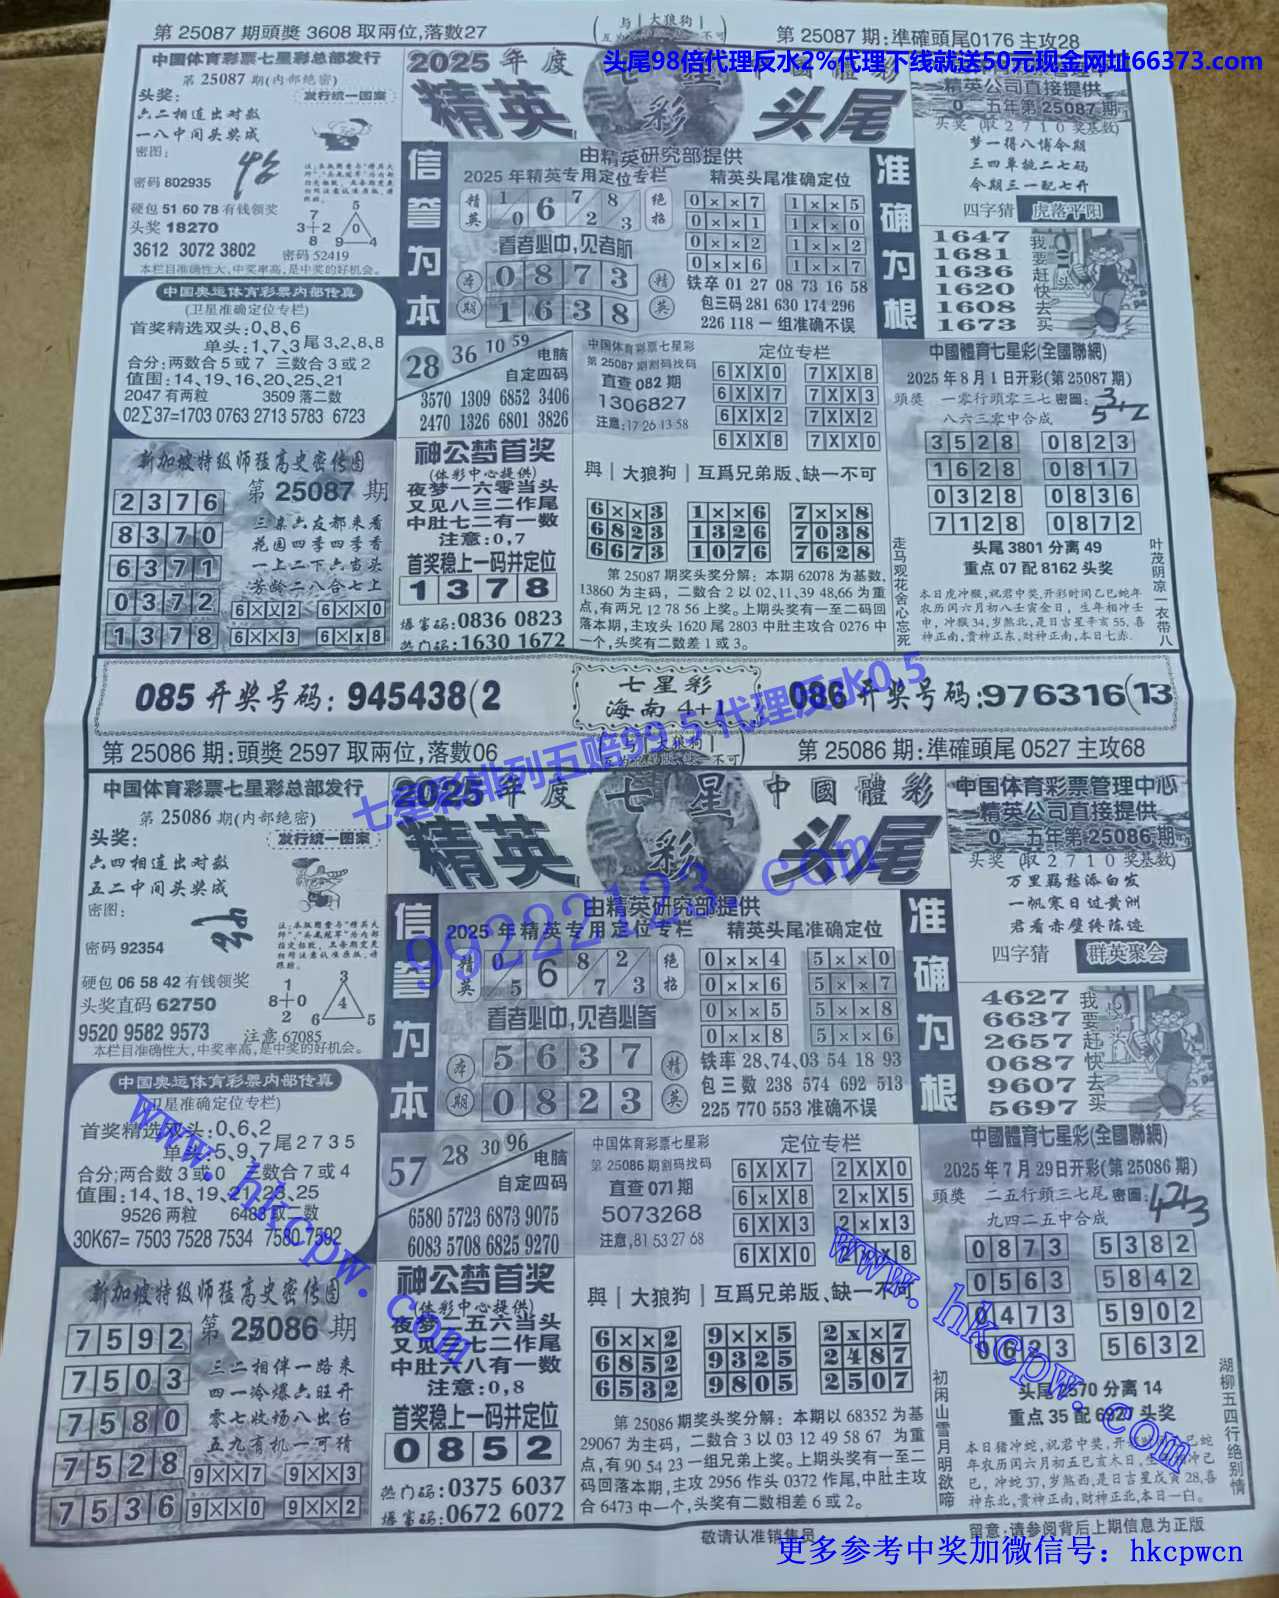 第 25087 期頭獎 3608 取兩位,落數27
与 大狼狗
第 25087 期:準確頭尾0176 主攻28
头尾98倍代理反水2%代理下线就送50元现金网址66373.com
中国体育彩票七星彩总部发行
第 25087 期(内部绝密)
头奖:
发行统一图案
六二相连出对数
一八中间头奖成
密图:
密码 802935
硬包 51 60 78 有钱领奖
头奖 18270
3612 3072 3802
密码 52419
本栏目准确性大,中奖率高,是中奖的好机会。
2025 年 度 七 星 彩 中國體彩
精英 头尾
由精英研究部提供
信誉为本
准确为根
2025 年精英专用定位专栏
精英 1 0 6 7 2 8 3 绝招
看者必中,见者航
本期 0 8 7 3 精英
1 6 3 8
精英头尾准确定位
0 × × 7 1 × × 5
0 × × 1 1 × × 0
0 × × 2 1 × × 2
0 × × 6 1 × × 7
铁卒 01 27 08 73 16 58
包三码 281 630 174 296
226 118 一组准确不误
精英公司直接提供
0 五年第 25087 期
头奖 (取 2 7 1 0 奖基数)
梦一得八博今期
三四单挑二七码
今期三一配七开
四字猜 虎落平阳
1647
1681
1636
1620
1608
1673
我要赶快去买
中国奥运体育彩票内部传真
(卫星准确定位专栏)
首奖精选双头:0,8,6
单头:1,7,3 尾3,2,8,8
合分:两数合 5 或 7 三数合 3 或 2
值围:14,19,16,20,25,21
2047 有两粒 3509 落二数
02∑37=1703 0763 2713 5783 6723
28 36 10 59 电脑
自定四码
3570 1309 6852 3406
2470 1326 6801 3826
中国体育彩票七星彩
第 25087 期割码找码
直查 082 期
1306827
注意:17 26 13 58
定位专栏
6XX0 7XX8
6XX7 7XX3
6XX2 7XX2
6XX8 7XX0
中國體育七星彩(全國聯網)
2025 年 8 月 1 日开彩(第 25087 期)
頭獎 一零行頭零三七 密圖:
八六三零中合成
3528 0823
1628 0817
0328 0836
7128 0872
头尾 3801 分离 49
重点 07 配 8162 头奖
本日虎冲猴,祝君中奖,开彩时间乙巳蛇年
农历闰六月初八壬寅金日,生年相冲壬
申,冲猴34,岁煞北,是日吉星辛亥55,喜
神正南,贵神正东,财神正南,本日七赤.
走马观花舍心忘死
叶茂阴凉一衣带八
新加坡特级师猛高史密传图
第 25087 期
2376
8370
6371
0372
1378
三亲六友都来看
花园四季四季香
一上二下六当头
芳龄二八合七上
6××2 6××0
6××3 6××8
神公梦首奖
(体彩中心提供)
夜梦一六零当头
又见八三二作尾
中肚七二有一数
注意:0,7
首奖稳上一码并定位
1378
爆富码:0836 0823
热门码:1630 1672
與 | 大狼狗 | 互爲兄弟版、缺一不可
6××3 1××6 7××8
6823 1326 7038
6673 1076 7628
第 25087 期奖头奖分解:本期 62078 为基数,
13860 为主码,二数合 2 以 02、11、39 48,66 为重
点,有两兄 12 78 56 上奖。上期头奖有一至二码回
落本期,主攻头 1620 尾 2803 中肚主攻合 0276 中
一个,头奖有二数差 1 或 3。
085 开奖号码:945438(2
七星彩
海南 4+1
086 开奖号码:976316(13
七星彩排列五赔99.5 代理反水0.5
99222123.com
第 25086 期:頭獎 2597 取兩位,落數06
与 大狼狗
第 25086 期:準確頭尾 0527 主攻68
中国体育彩票七星彩总部发行
第 25086 期(内部绝密)
头奖:
发行统一图案
六四相连出对数
五二中间头奖成
密图:
密码 92354
硬包 06 58 42 有钱领奖
头奖直码 62750
9520 9582 9573
注意 67085
本栏目准确性大,中奖率高,是中奖的好机会。
2025 年 度 七 星 彩 中國體彩
精英 头尾
由精英研究部提供
信誉为本
准确为根
2025 年精英专用定位专栏
精英 0 5 6 8 7 2 3 绝招
看者必中,见者必参
本期 5 6 3 7 精英
0 8 2 3
精英头尾准确定位
0××4 5××0
0××6 5××7
0××5 5××8
0××8 5××6
铁率 28,74,03 54 18 93
包三数 238 574 692 513
225 770 553 准确不误
中国体育彩票管理中心
精英公司直接提供
0 五年第 25086 期
头奖 (取 2 7 1 0 奖基数)
万里羁愁添白发
一帆寒日过黄洲
君看赤壁终陈迹
四字猜 群英聚会
4627
6637
2657
0687
9607
5697
我要赶快去买
中国奥运体育彩票内部传真
(卫星准确定位专栏)
首奖精选双头:0,6,2
单头:5,9,7 尾 2 7 3 5
合分:两合数 3 或 0 三数合 7 或 4
值围:14、18、19、21、23、25
9526 两粒 6483 或二数
30K67= 7503 7528 7534 7580 7592
57 28 30 96 电脑
自定四码
6580 5723 6873 9075
6083 5708 6825 9270
中国体育彩票七星彩
第 25086 期割码找码
直查 071 期
5073268
注意,81 53 27 68
定位专栏
6XX7 2XX0
6×X8 2×X5
6XX3 2××3
6XX0 2××8
中國體育七星彩(全國聯網)
2025 年 7 月 29 日开彩(第 25086 期)
頭獎 二五行頭三七尾 密圖:
九四二五中合成
0873 5382
0563 5842
0473 5902
0623 5632
头尾 2570 分离 14
重点 35 配 6920 头奖
初闲山雪月明欲啼
湖柳五四行绝别情
新加坡特级师猛高史密传图
第 25086 期
7592
7503
7580
7528
7536
三二相伴一路来
四一冷爆六旺开
零七收场八出台
五九有机一可猜
9××7 9××3
9××0 9××2
神公梦首奖
(体彩中心提供)
夜梦二五六当头
又见三七二作尾
中肚六八有一数
注意:0,8
首奖稳上一码并定位
0852
热门码:0375 6037
爆富码:0672 6072
與 | 大狼狗 | 互爲兄弟版、缺一不可
6××2 9××5 2××7
6852 9325 2487
6532 9805 2507
第 25086 期奖头奖分解:本期以 68352 为基
29067 为主码,二数合 3 以 03 12 49 58 67 为重
点,有 90 54 23 一组兄弟上奖。上期头奖有一至二
码回落本期,主攻 2956 作头 0372 作尾,中肚主攻
合 6473 中一个,头奖有二数相差 6 或 2。
www.hkcpw.com
www.hkcpw.com
敬请认准销售员
留意:请参阅背后上期信息为正版
更多参考中奖加微信号: hkcpwcn